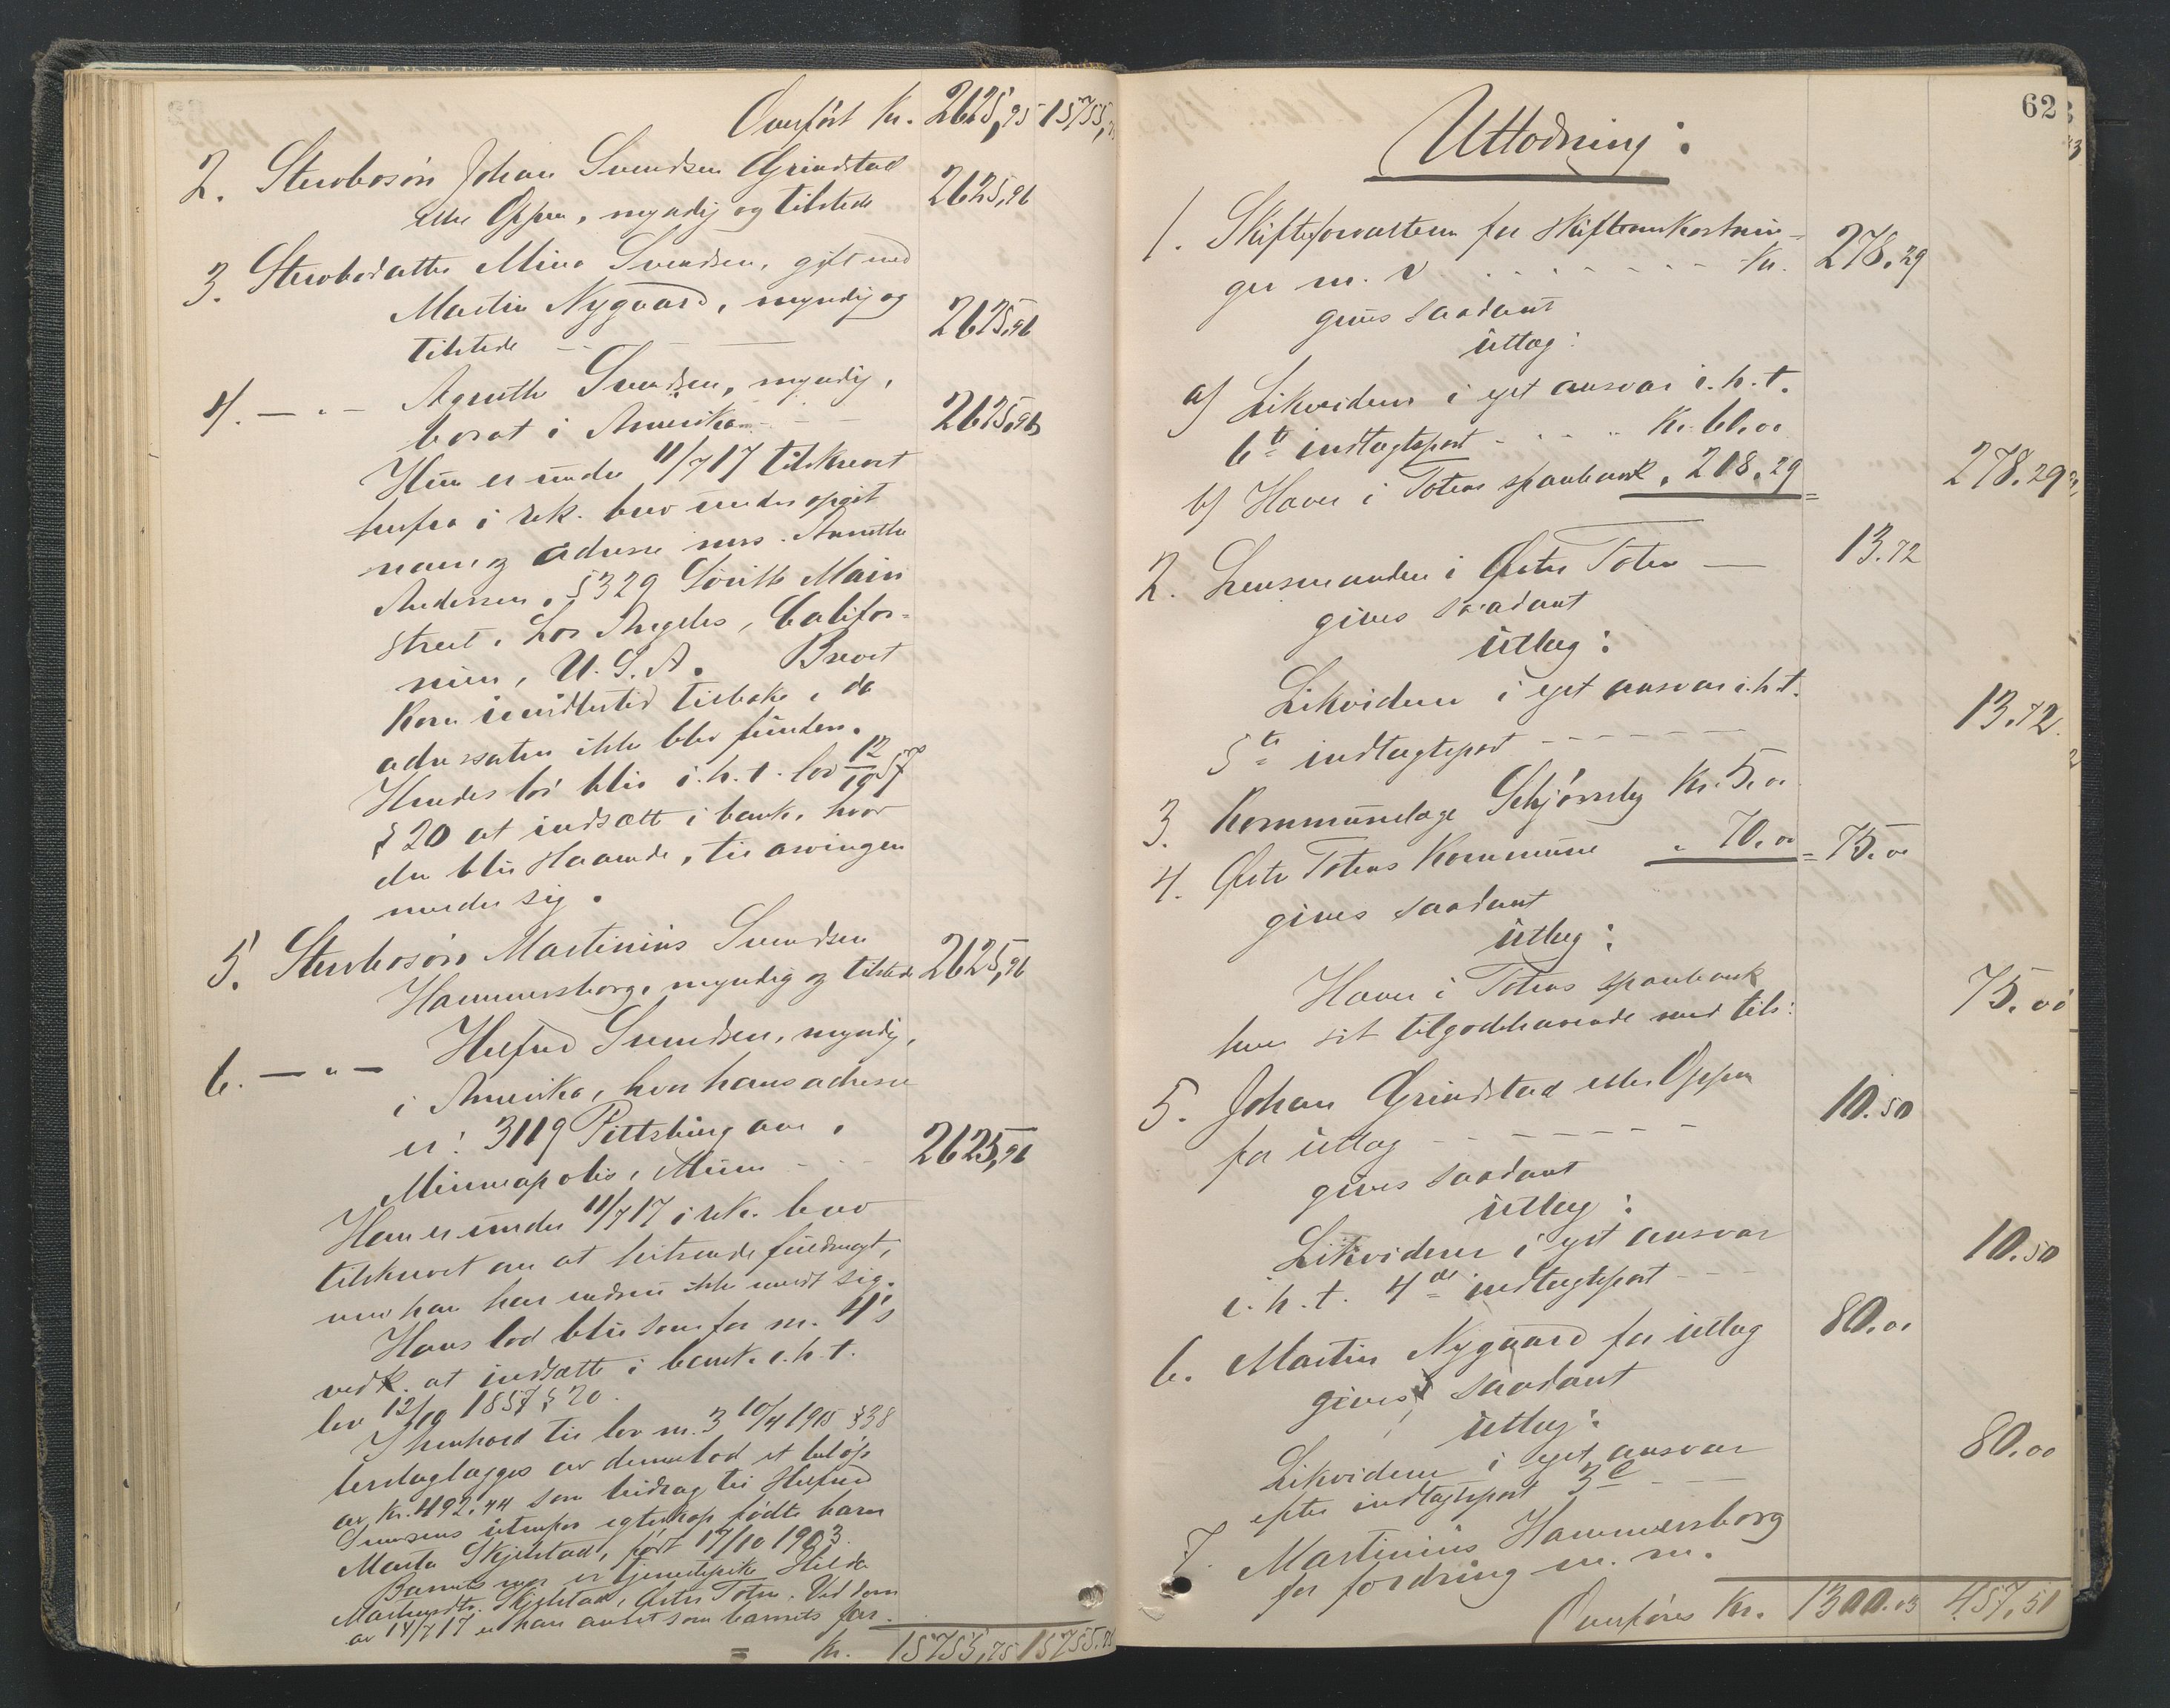 Overført Kr. 2625,95 15755,
2. Stervbosøn Johan Svendsen Grindstad
eller Oppen, myndig og tilstede 2625,96
3. Stervbodatter Mina Svendsen, gift med
Martin Nygaard, myndig og
tilstede — — 2625,96
4. — " — Agnethe Svendsen, myndig,
bosat i Amerika 2625,96
Hun er under 11/7 17 tilskrevet
herfra i rek. brev under opgit
navn og adresse mrs. Annethe
Andersen, 5329 South Main
Street, Los Angeles, Califor-
nien, U.S.A. Brevet
kom imidlertid tilbake, da
adressaten ikke blev funden.
Hendes lod blir i.h.t. lov 12/10 57
§ 20 at indsætte i bank, hvor
den blir staaende, til arvingen
melder sig.
5. Stervbosøn Martinius Svendsen
Hammersborg, myndig og tilstede 2625,96
6. — " — Helfred Svendsen, myndig,
i Amerika, hvor hans adresse
er: 3119 Pittsburg ave,
Minneapolis, Minn 2625,96
Han er under 11/7 17 i rek. brev
tilskrevet om at hitsende fuldmagt,
men han har endnu ikke meldt sig.
Hans lod blir som for nr. 4's
vedk. at indsætte i bank i.h.t.
lov 12/10 1857 § 20.
I henhold til lov nr. 3 10/4 1915 §38
beslaglægges av denne lod et beløp
av kr. 492.44 som bidrag til Helfred
Svendsens utenfor egteskap fødte barn
Marta Skjelstad, født 17/10 1903.
Barnets mor er tjenestepike Hilda
Skjelstad, Østre Toten. Ved dom
av 14/7 17 er han anset som barnets far.
= Kr. 15755,75 15755.
62
Utlodning:
1. Skifteforvalteren for skifteomkostnin-
ger m. v. Kr. 278.29
gives saadant
utlæg:
a) Likviderer i eget ansvar i.h.t.
6te indtægtspost Kr. 60.00
b) Haver i Totens sparebank " 218.29 = 278.29
2. Lensmanden i Østre Toten — 13.72
gives saadant
utlæg:
Likviderer i eget ansvar i.h.t.
5te indtægtspost 13.72
3. Kommunelæge Schjørnsby Kr. 5.00
4. Østre Totens Kommune " 70.00 = 75.00
gives saadant
utlæg:
Haver i Totens sparebank
hver sit tilgodehavende med tils: 75.00
5. Johan Grindstad eller Oppen
for utlæg 10.50
gives saadant
utlæg:
Likviderer i eget ansvar
i.h.t. 4de indtægtspost 10.50
6. Martin Nygaard for utlæg 80.00
gives saadant
utlæg:
Likviderer i eget ansvar
efter indtægtspost 3 80.00
7. Martinius Hammersborg
for fordring m. m.
Overføres Kr. 1300.03 457,51